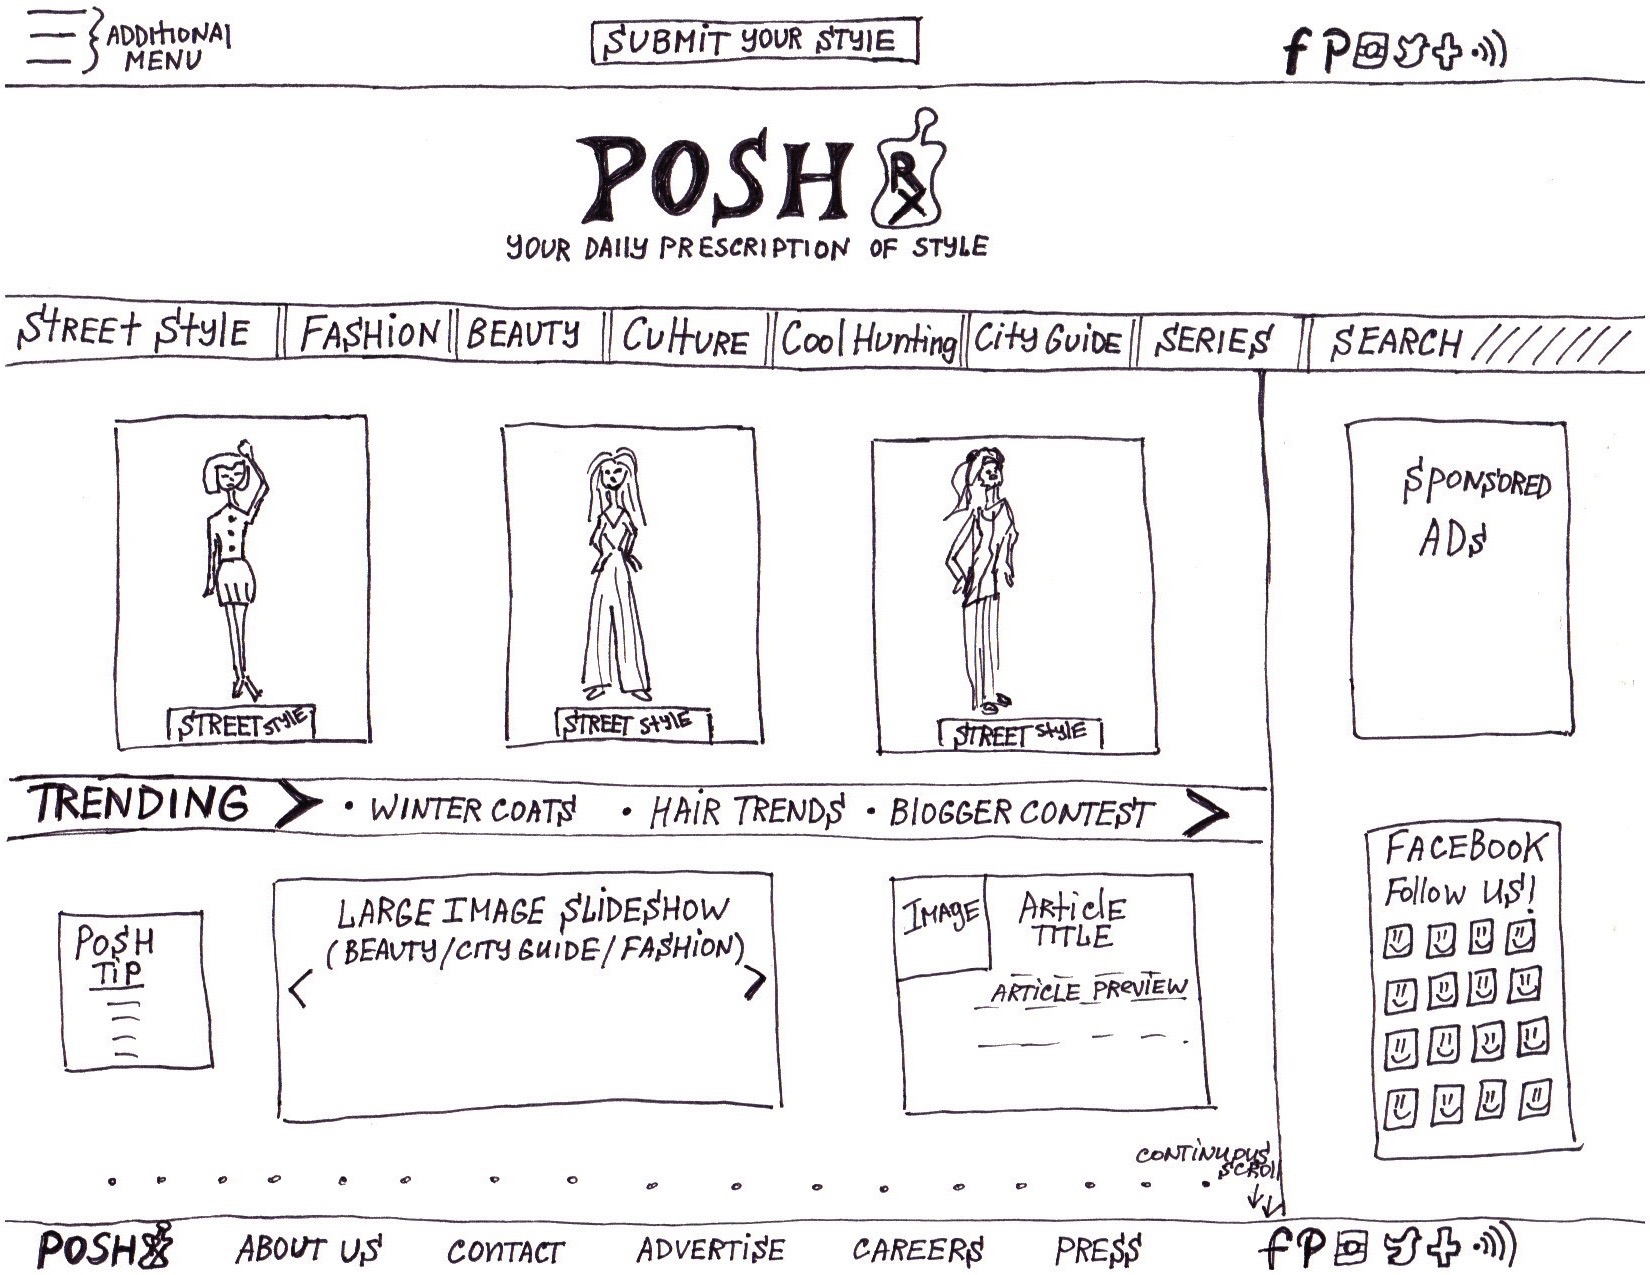 ADDITIONAL
MENU
SUBMIT YOUR STYLE
f P
POSH RX
YOUR DAILY PRESCRIPTION OF STYLE
STREET STYLE FASHION BEAUTY CULTURE Cool Hunting City GUIDE SERIES SEARCH
STREET STYLE
STREET STYLE
STREET STYLE
SPONSORED
ADS
TRENDING > • WINTER COATS • HAIR TRENDS • BLOGGER CONTEST >
POSH
TIP
LARGE IMAGE SLIDESHOW
(BEAUTY/CITY GUIDE/FASHION)
< >
IMAGE
ARTICLE
TITLE
ARTICLE PREVIEW
FACEBOOK
Follow US!
CONTINUOUS
SCROLL
POSH RX ABOUT US CONTACT ADVERTISE CAREERS PRESS f P